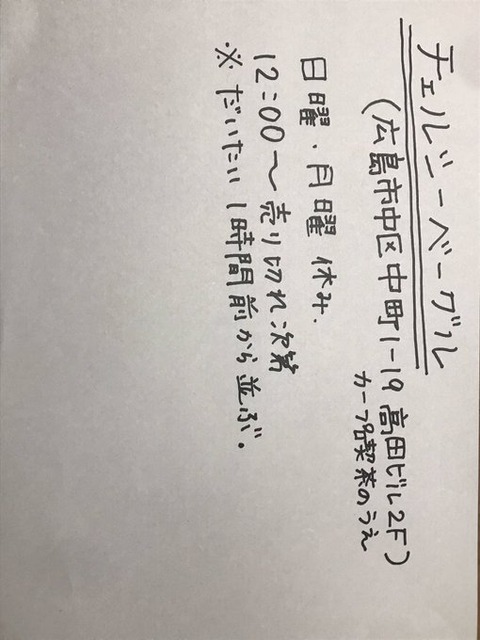 チェルシーベーグル
(広島市中区中町1-19 高田ビル2F)
カープ喫茶のうえ
日曜・月曜 休み.
12:00〜売り切れ次第
※だいたい1時間前から並ぶ。